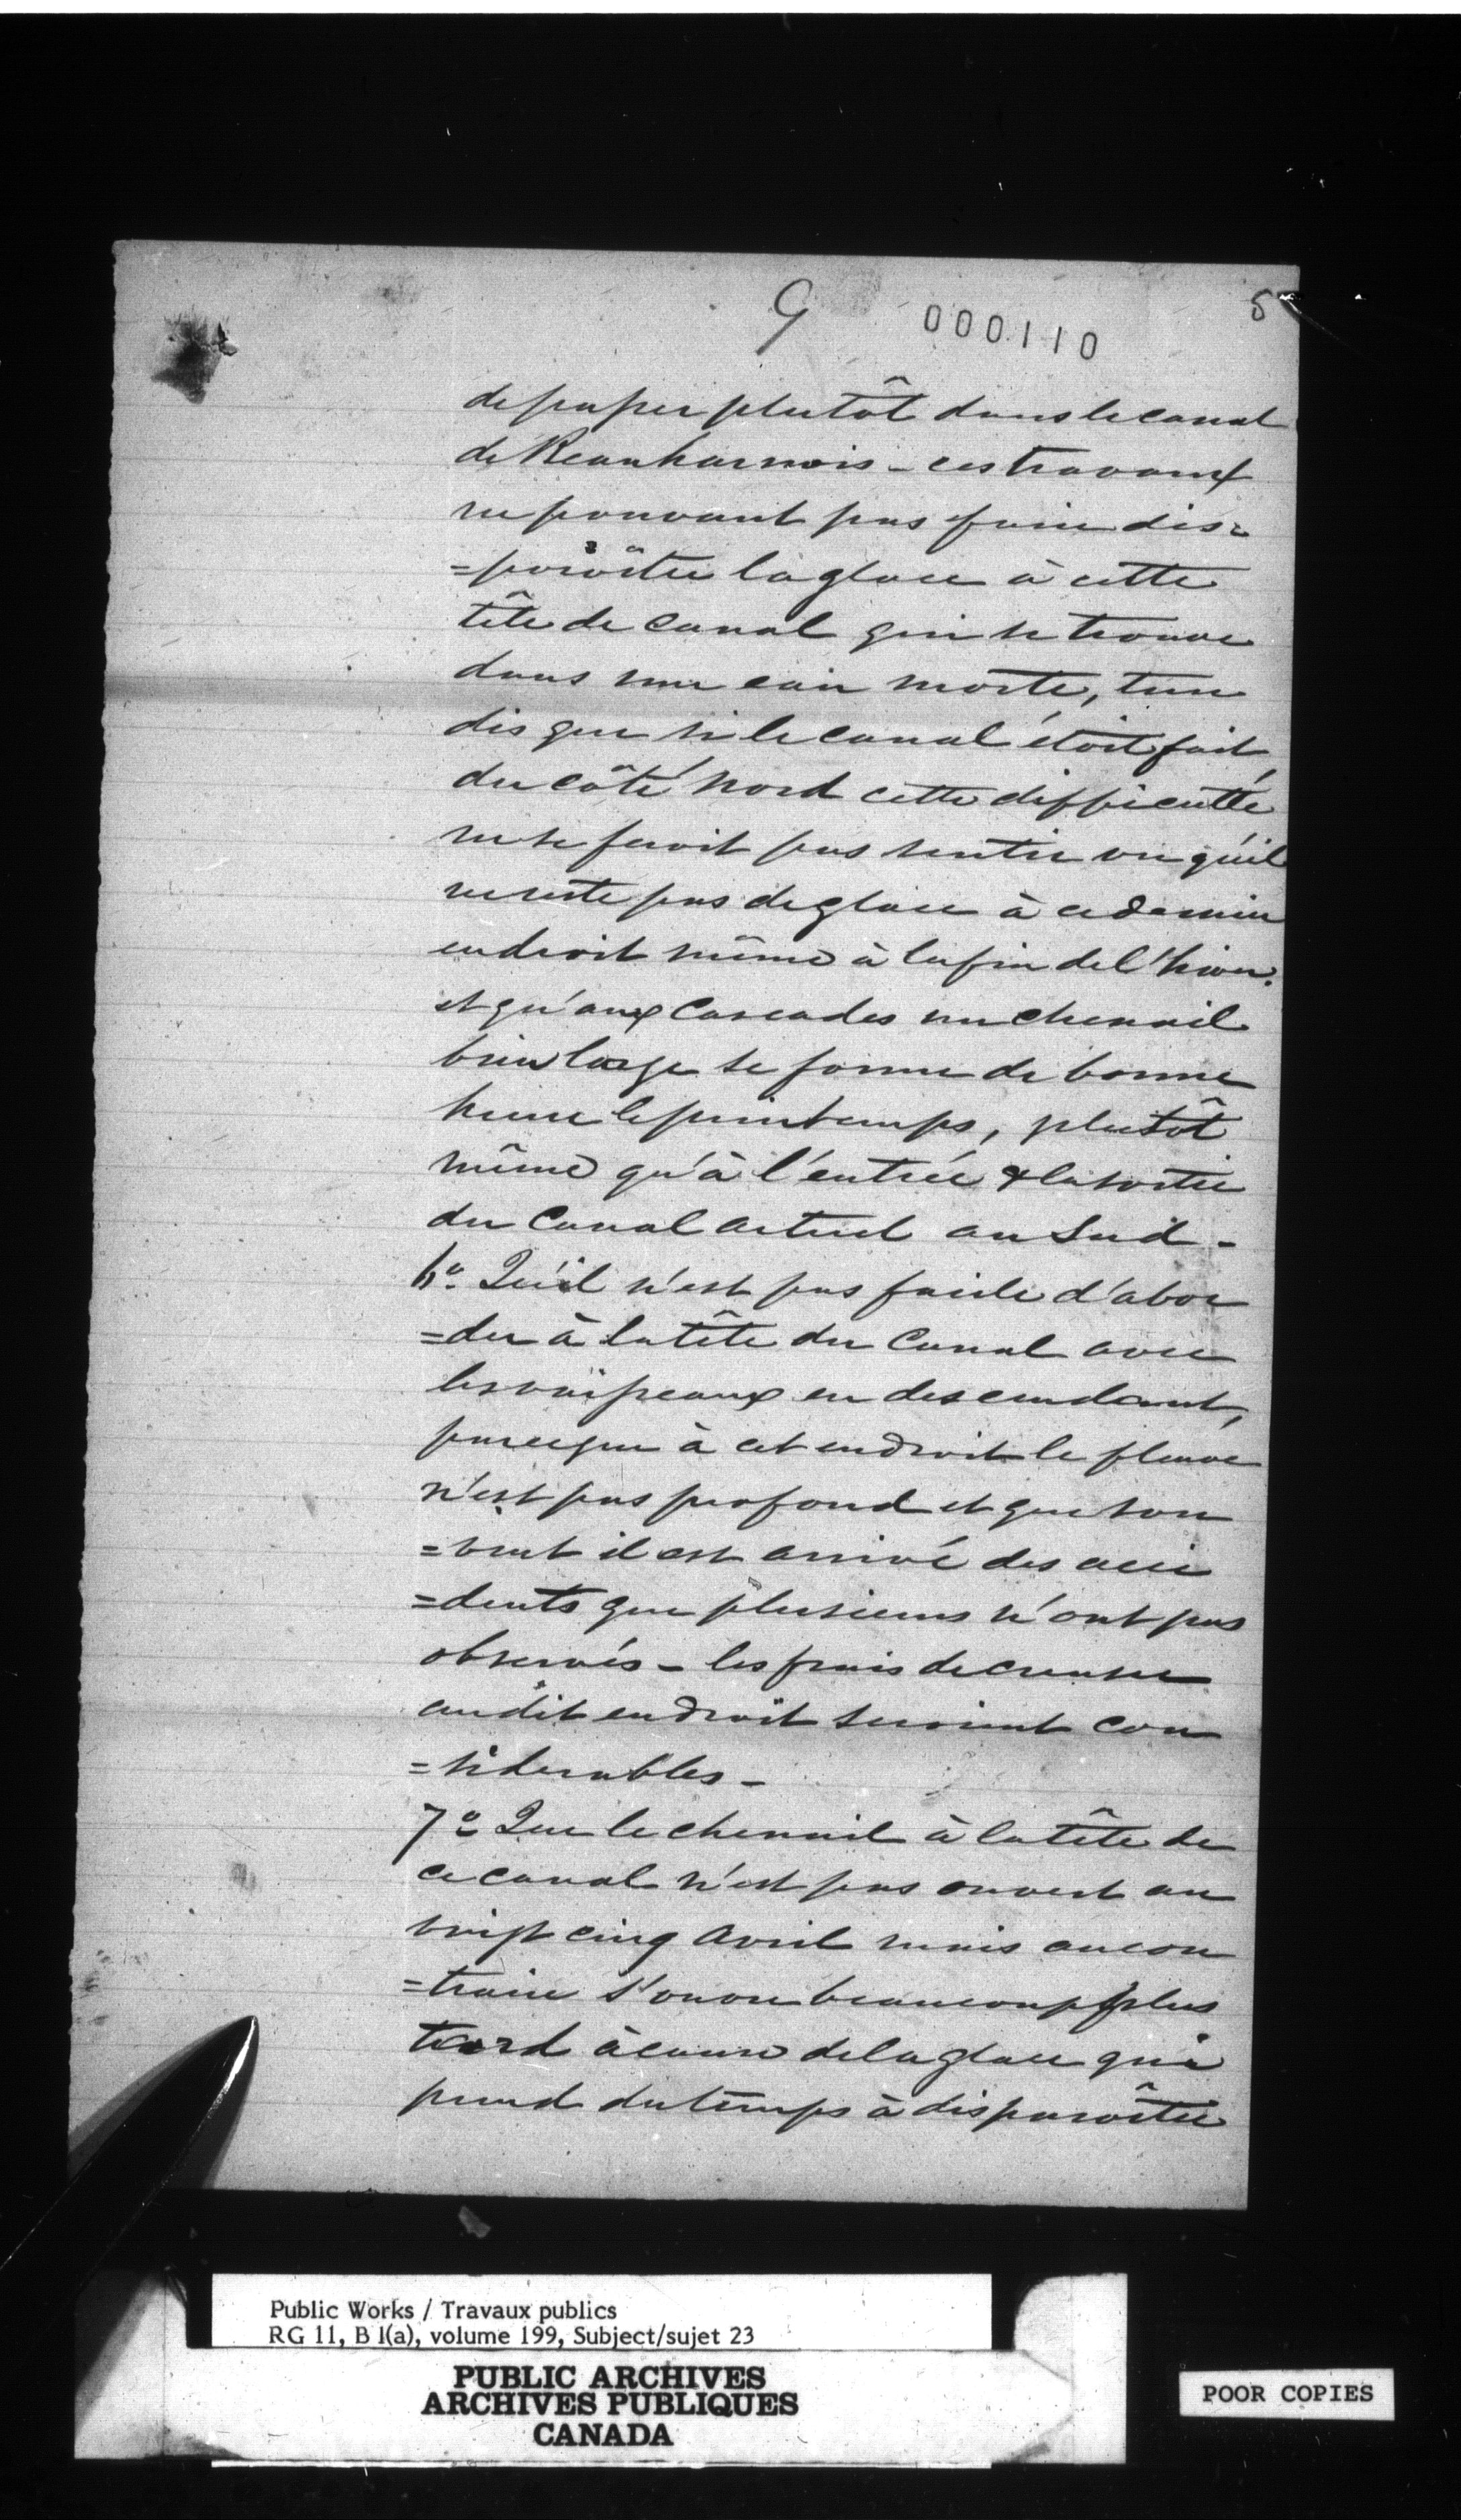 G 000110 5
de passer plutôt dans le canal
de Beauharnois - ces travaux
ne pouvant pas faire dis-
=paroître la glace à cette
tête de canal qui se trouve
dans une eau morte, tan
dis que si le canal étoit fait
du côté nord cette difficulté
ne se feroit pas sentir vu qu'il
ne reste pas de glace à ce dernier
endroit même à la fin de l'hiver.
et qu'aux Cascades un chenail
bien large se forme de bonne
heure le printemps, plutôt
même qu'à l'entrée & la sortie
du Canal actuel au Sud -
6º. Qu'il n'est pas facile d'abor
=der à la tête du Canal avec
les vaisseaux en descendant,
parceque à cet endroit le fleuve
n'est pas profond et que sou
=vent il est arrivé des acci
=dents que plusieurs n'ont pas
observés - les frais de creuser
au dit endroit seroient con
=siderables -
7º Que le chenail à la tête de
ce canal n'est pas ouvert au
vingt cinq Avril mais au con
=traire s'ouvre beaucoup plus
tard à cause de la glace qui
prend du temps à disparoître
Public Works / Travaux publics
RG 11, B 1(a), volume 199, Subject/sujet 23
PUBLIC ARCHIVES
ARCHIVES PUBLIQUES
CANADA
POOR COPIES